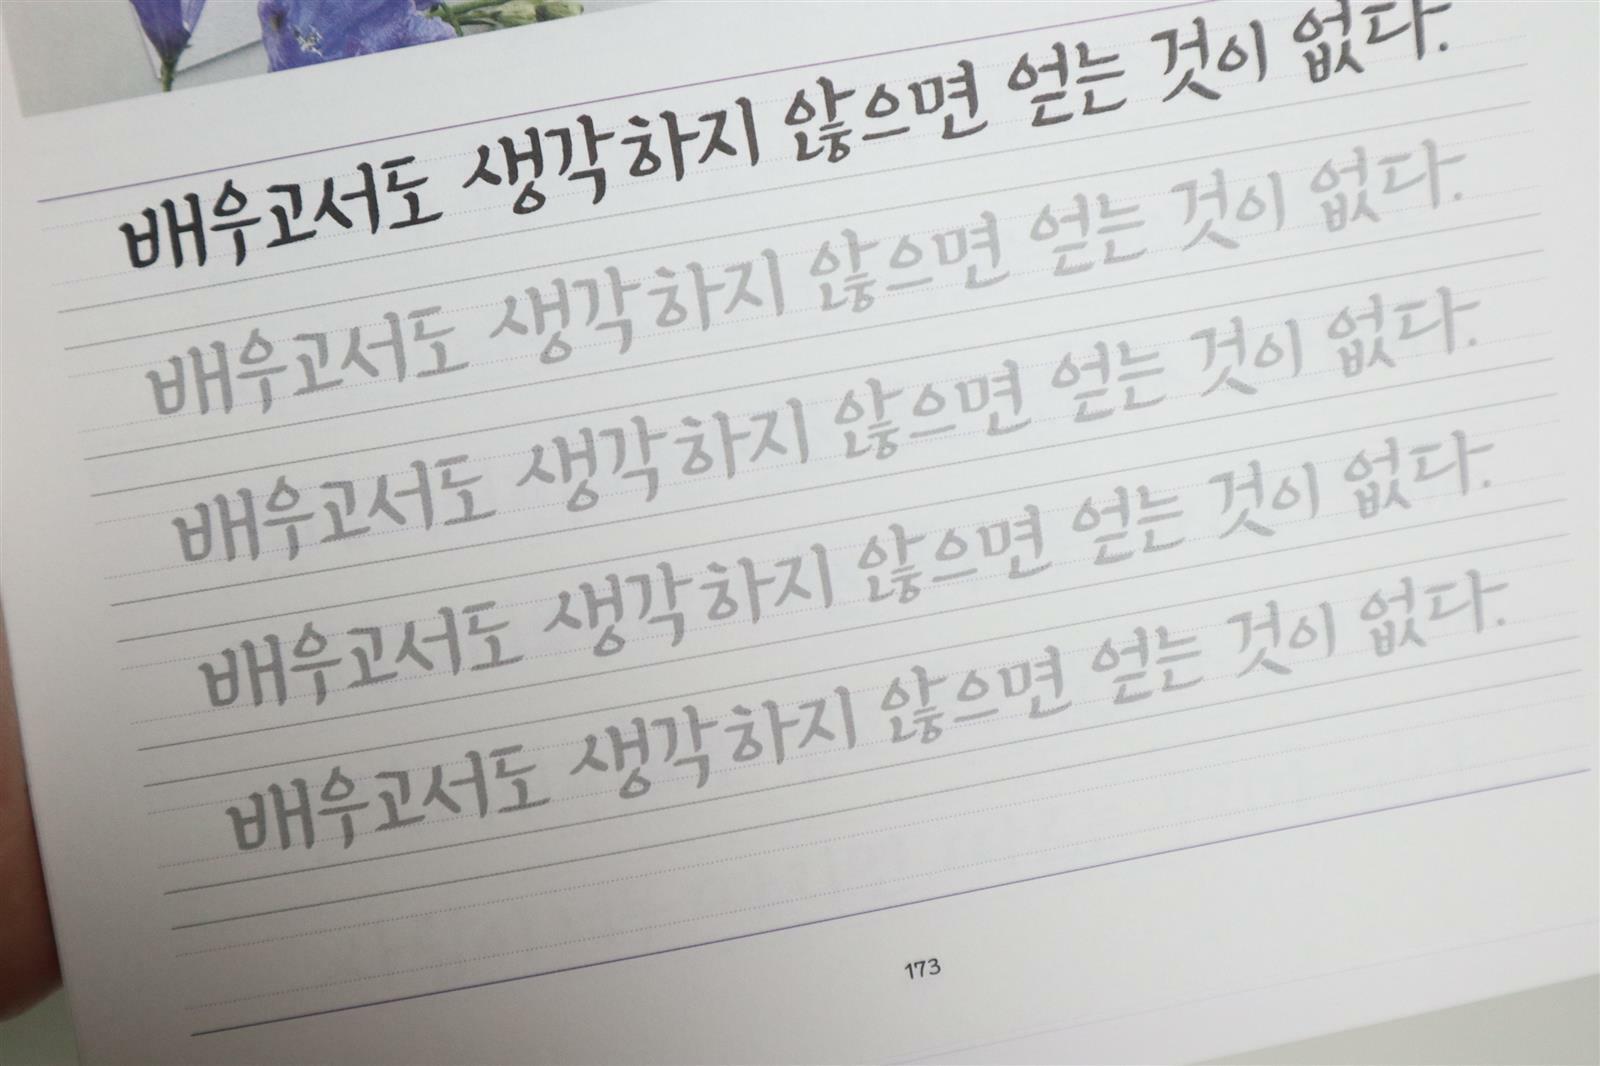 배우고서도 생각하지 않으면 얻는 것이 없다.
배우고서도 생각하지 않으면 얻는 것이 없다.
배우고서도 생각하지 않으면 얻는 것이 없다.
배우고서도 생각하지 않으면 얻는 것이 없다.
배우고서도 생각하지 않으면 얻는 것이 없다.
173